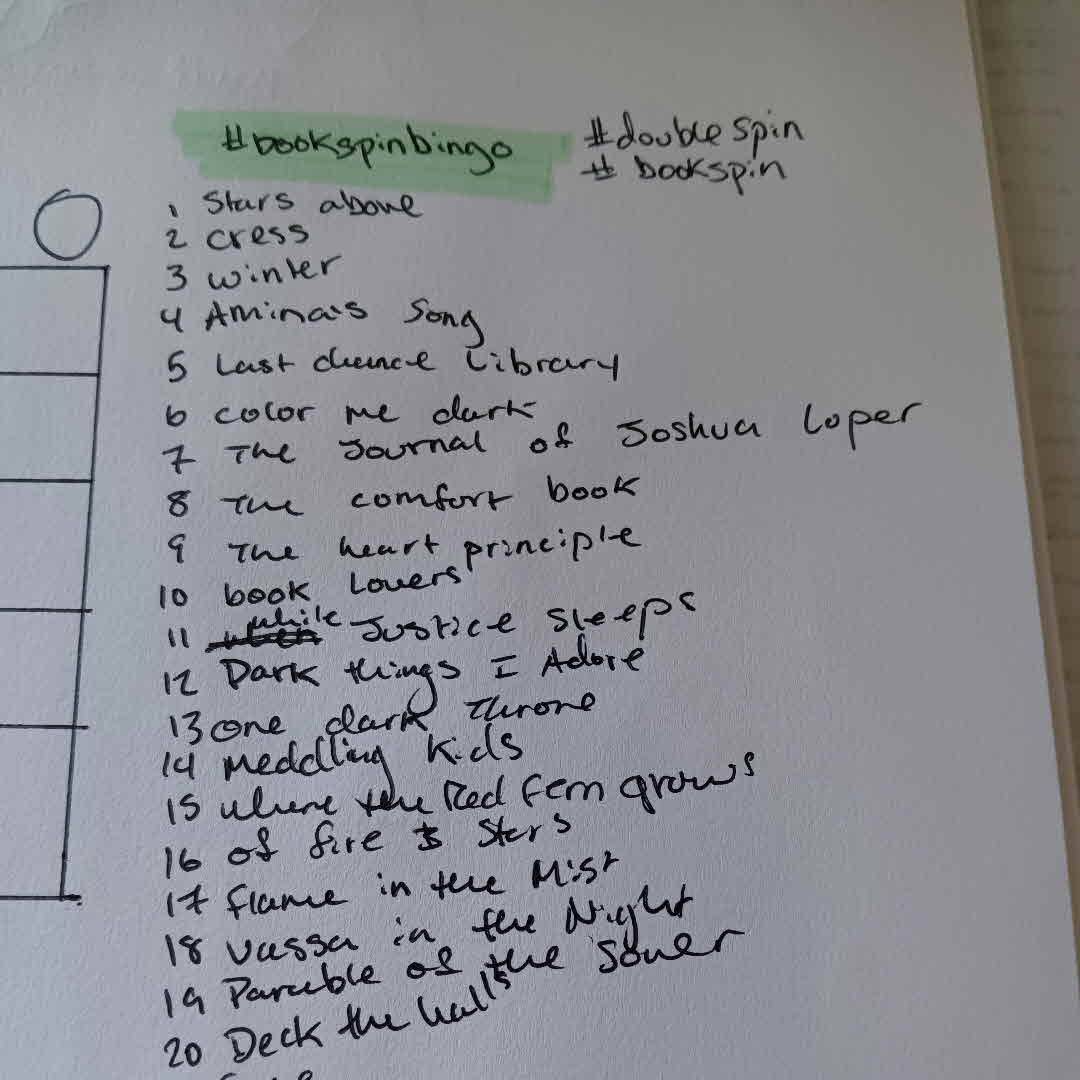 #bookspinbingo
#doublespin
# bookspin
1 Stars above
2 cress
3 winter
4 Amina's Song
5 Last chance Library
6 color me dark
7 The Journal of Joshua Loper
8 The comfort book
9 The heart principle
10 book Lovers
11 while Justice Sleeps
12 Dark things I Adore
13 one dark Throne
14 meddling kids
15 where the Red Fern grows
16 of fire & Stars
17 flame in the Mist
18 vassa in the Night
19 Parable of the Sower
20 Deck the halls